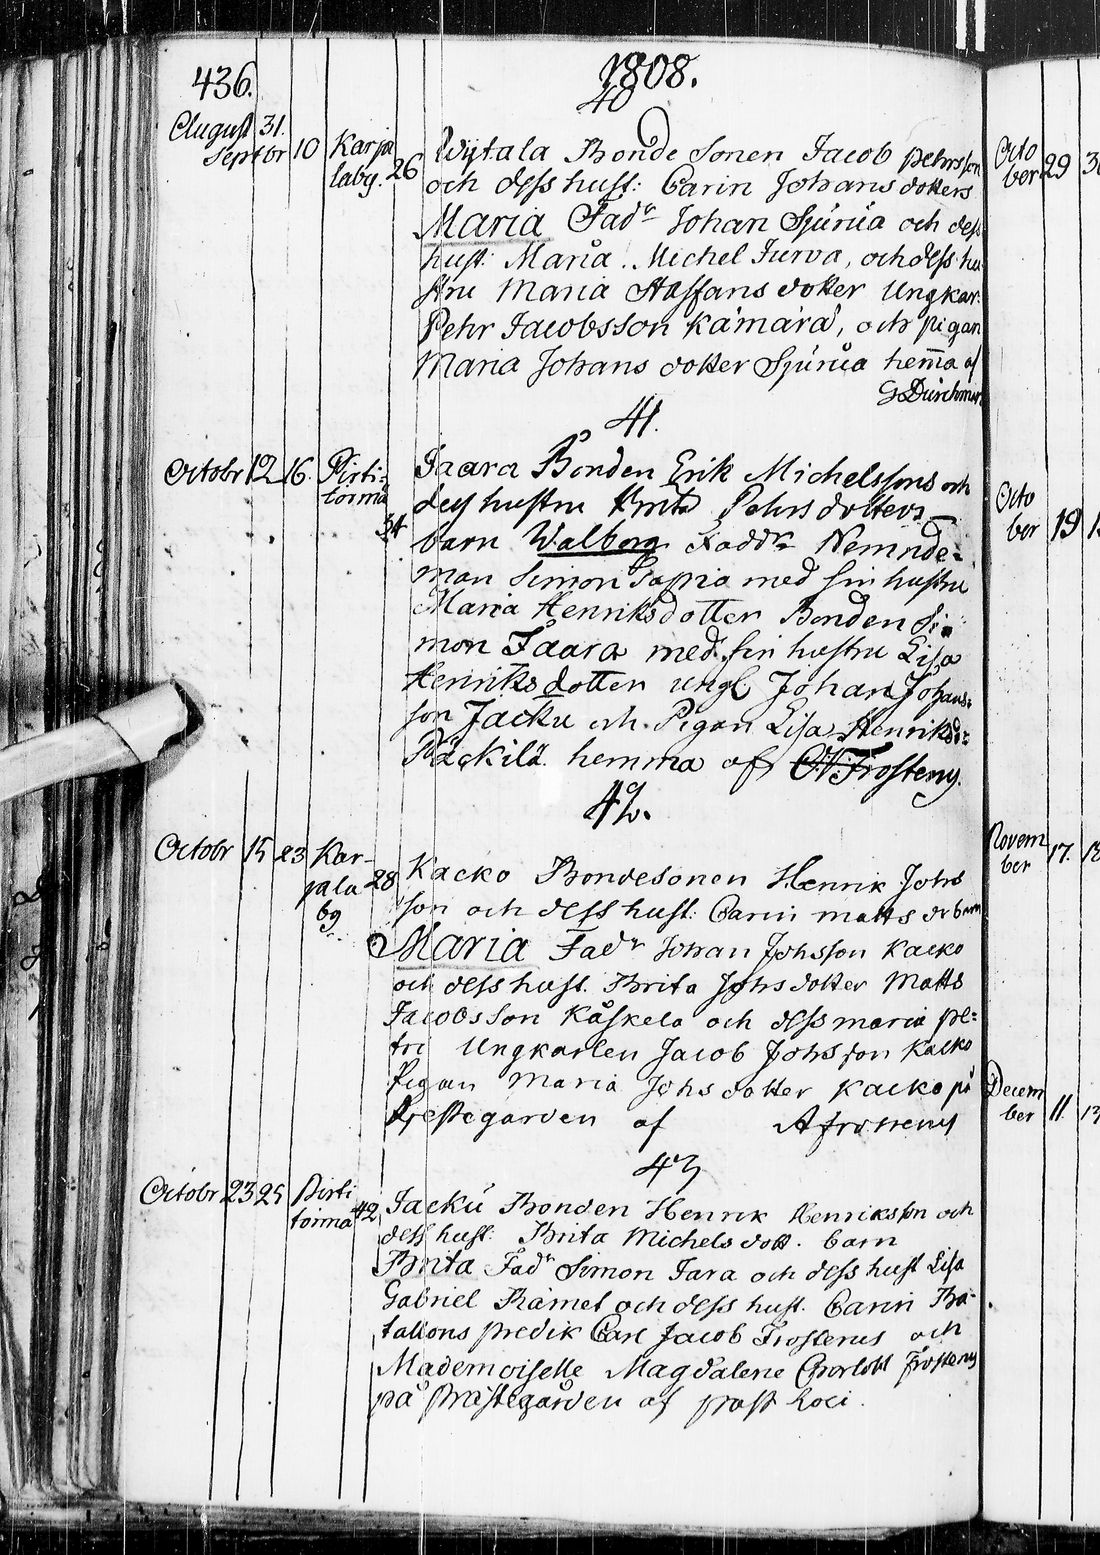 436.
1808.
40
August 31.
Septbr 10 Karja
laby. 26
Wijtala Bonde Sonen Jacob Pehrsson
och dess hust: Carin Johans dotters
Maria Fadr Johan Sjurua och dess
hust: Maria. Michel Jurva, och dess hu
stru Maria Staffans dotter Ungkar:
Pehr Jacobsson Kämärä, och pigan
Maria Johans dotter Sjurua hema af
G Durchman
41.
Octobr 12 16. Pirti-
toima
34
Jaara Bonden Erik Michelssons och
dess hustru Brita Pehrsdotters
barn Walborg Faddr Nemnde-
man Simon med sin hustru
Maria Henriksdotter Bonden Si-
mon Jaara med sin hustru Lisa
Henriks dotter Ungk. Johan Johans-
son Jacku och Pigan Lisa Henriksd:
Päckilä hemma af Frosterus.
42.
Octobr 15 23 Kar-
jala 28
by
Kacko Bondesonen Henrik Johs
son och dess hust: Carin Matts dr barn
Maria Fadr Johan Johsson Kacko
och dess hust. Brita Johs dotter Matts
Jacobsson Kåskela och dess maria pe-
tri Ungkarlen Jacob Johsson Kacko
Pigan Maria Johs dotter Kacko på
Prestegården af A frosterus
43
Octobr 23 25 Pirti
toima 42
Jacku Bonden Henrik Henriksson och
dess hust: Brita Michels dott. barn
Brita Fadr Simon Jara och dess hust Lisa
Gabriel Rämet och dess hust. Carin Ba-
tallions predik Carl Jacob Frosterus och
Mademoiselle Magdalene Charlott Frosterus
på Prästegården af past Loci.
Octo
ber 29
Octo
ber 19
Novem
ber 17.
Decem
ber 11